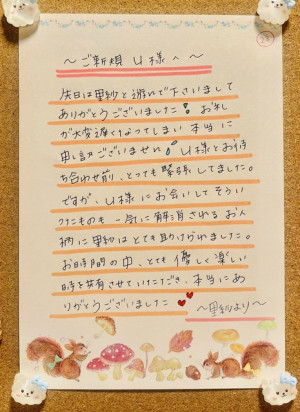 ～ご新規 U様へ～
先日は里紗と遊いで下さいまして
ありがとうございました！お礼
が大変遅くなってしまい本当に
申し訳ございません！U様とお待
ち合わせ前、とっても緊張してました。
ですが、U様にお会いしてそうい
ったものも一気に解消されるお人
柄に里紗はとても助けられました。
お時間の中、とても優しく楽しい
時を共有させていただき、本当にあ
りがとうございました
～里紗より～